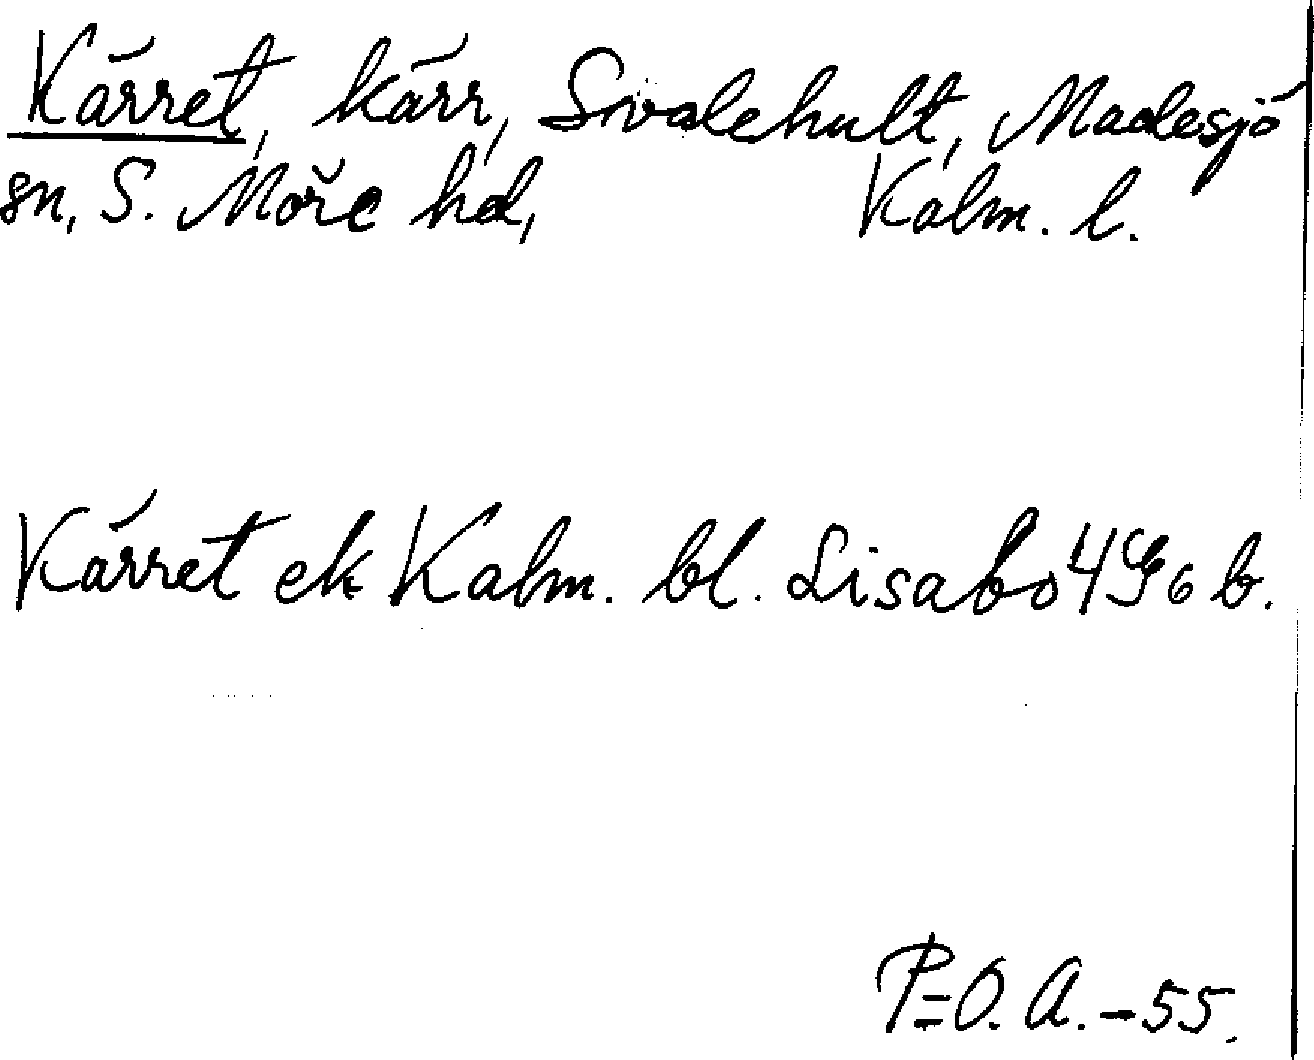 Kärret, kärr, Sivalehult, Madesjö
sn, S. Möre hd, Kalm. l.
Kärret ek Kalm. bl. Lisabo 4 G 6 b.
P=O. A. -55.